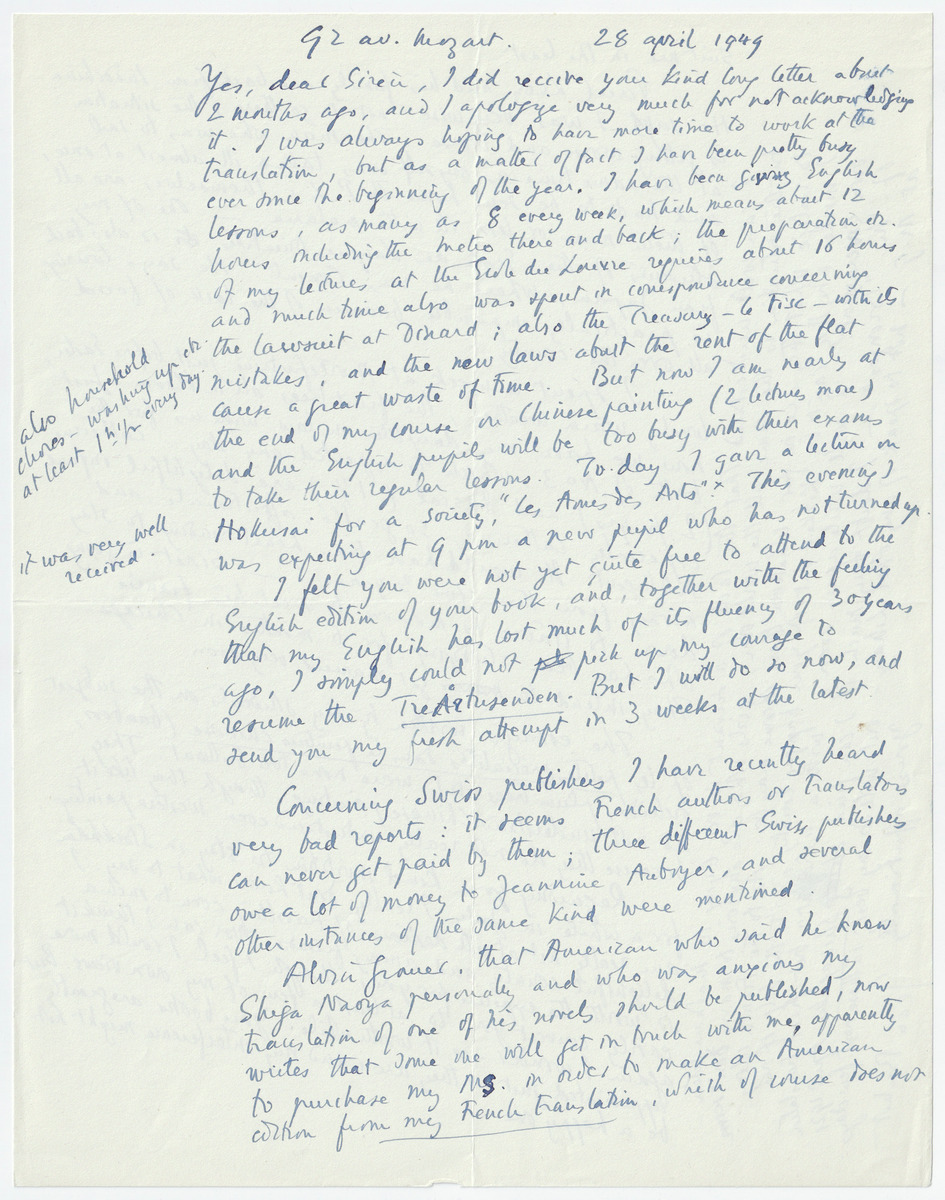 92 av. Mozart. 28 april 1949
Yes, dear Sirén, I did receive your kind long letter about
2 months ago, and I apologize very much for not acknowledging
it. I was always hoping to have more time to work at the
translation, but as a matter of fact I have been pretty busy
ever since the beginning of the year. I have been giving English
lessons, as many as 8 every week, which means about 12
hours including the metro there and back; the preparation etc.
of my lectures at the Ecole du Louvre requires about 16 hours
and much time also was spent in correspondence concerning
the lawsuit at Dinard; also the Treasury – le Fisc – with its
mistakes, and the new laws about the rent of the flat
cause a great waste of time. But now I am nearly at
the end of my course on Chinese painting (2 lectures more)
and the English pupils will be too busy with their exams
to take their regular lessons. To-day I gave a lecture on
Hokusai for a society, "Les Amis des Arts".x This evening I
was expecting at 9 pm a new pupil who has not turned up.
also household
chores – washing up etc.
at least 1 h 1/2 every day.
it was very well
received.
I felt you were not yet quite free to attend to the
English edition of your book, and, together with the feeling
that my English has lost much of its fluency of 30 years
ago, I simply could not pick up my courage to
resume the Tre Årtusenden. But I will do so now, and
send you my fresh attempt in 3 weeks at the latest.
Concerning Swiss publishers I have recently heard
very bad reports: it seems French authors or translators
can never get paid by them; three different Swiss publishers
owe a lot of money to Jeannine Auboyer, and several
other instances of the same kind were mentioned.
that American who said he knew
Shiga Naoya personally and who was anxious my
translation of one of his novels should be published, now
writes that some one will get in touch with me, apparently
to purchase my ms. in order to make an American
edition from my French translation, which of course does not